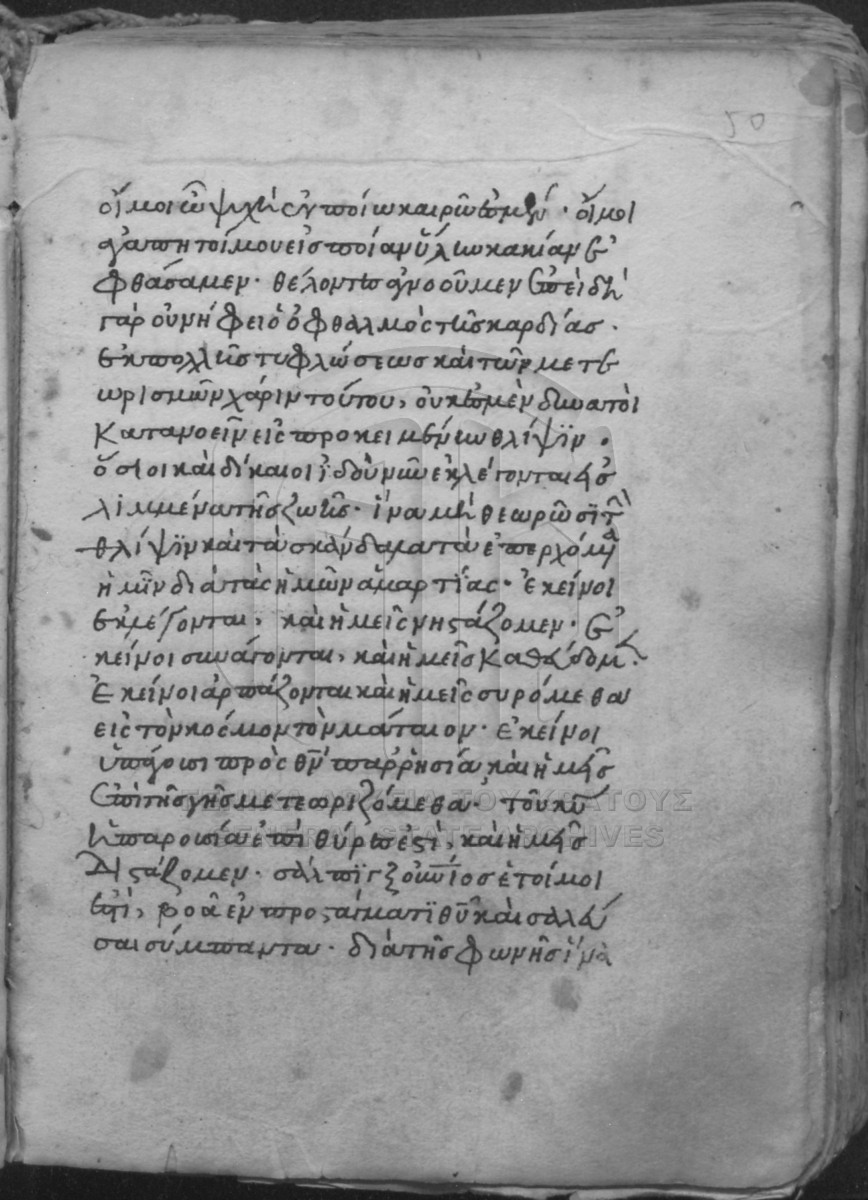 50
οἴμοι ὦ ψυχὴ ἐν ποίω καιρῶ ἐσμέν · οἴμοι
ἀγαπητοί μου εἰς ποίαν ὕλιω κακίαν ἐ
φθάσαμεν · θέλοντες ἀγνοοῦμεν ἐπειδὴ
γὰρ οὐ νήφει ὁ ὀφθαλμὸς τῆς καρδίας ·
ἐκ πολλῆς τυφλώσεως καὶ τῶν μετε
ωρισμῶν χάριν τούτου, οὐκ ἐσμὲν δυνατοὶ
κατανοεῖν εἰς προκειμένιω θλίψϊν ·
ὅσιοι καὶ δίκαιοι ἰδοὺ νῦν ἐκλέγονται εἰς
λιμμένα τῆς ζωῆς · ἵνα μὴ θεωρῶσϊ τὴν
θλίψϊν καὶ τὰ σκάνδαματα ἐπερχόμενα
ἡμῖν διὰ τὰς ἡμῶν ἁμαρτίας · ἐκεῖνοι
ἐκλέγονται, καὶ ἡμεῖς νηστάζομεν · ἐ
κεῖνοι συνάγονται, καὶ ἡμεῖς καθεύδομεν ·
ἐκεῖνοι ἁρπάζονται καὶ ἡμεῖς συρόμεθα
εἰς τὸν κόσμον τὸν μάταιον · ἐκεῖνοι
ὑπάγουσι πρὸς θν̄ παρρησία καὶ ἡμεῖς
ἐπὶ τῆς γῆς μετεωριζόμεθα · τοῦ κῡ
ἡ παρουσία ἐπὶ θύραις ἐστὶ, καὶ ἡμεῖς
διστάζομεν · σάλπϊγξ οὐνίος ἑτοίμοι
ἐστί, βοᾶ ἐν προστάγματϊ θῡ καὶ σαλεύ
σαι σύμπαντα · διὰ τῆς φωνῆς ἵνα
ΓΕΝΙΚΑ ΑΡΧΕΙΑ ΤΟΥ ΚΡΑΤΟΥΣ
GENERAL STATE ARCHIVES